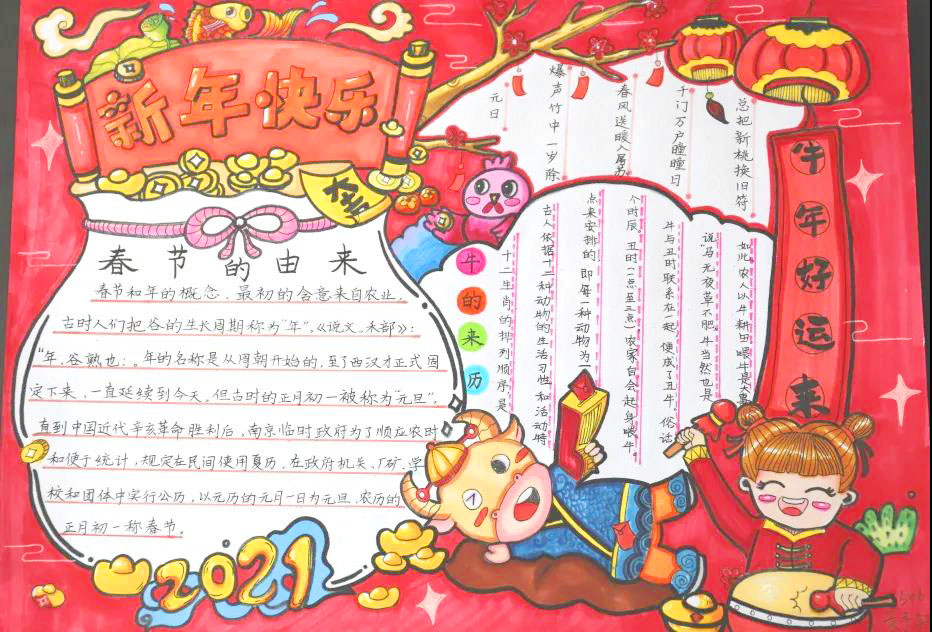 新年快乐
春节的由来
春节和年的概念，最初的含意来自农业，
古时人们把谷的生长周期称为“年”，《说文。禾部》：
“年，谷熟也：。年的名称是从周朝开始的，至了西汉才正式固
定下来，一直延续到今天。但古时的正月初一被称为“元旦”，
直到中国近代辛亥革命胜利后，南京临时政府为了顺应农时
和便于统计，规定在民间使用夏历，在政府机关、厂矿、学
校和团体中实行公历，以元历的元月一日为元旦，农历的
正月初一称春节。
2021
元日
爆声竹中一岁除
春风送暖入屠苏
千门万户瞳瞳日
总把新桃换旧符
牛的来历
十二生肖的排列顺序，是
古人依据十二种动物的生活习性和活动特
点来安排的，即每一种动物为一
个时辰，丑时（一点至三点）农家自会起身喂牛。
牛与丑时联系在一起，便成了丑牛，俗话
说“马无夜草不肥”，牛当然也是
如此，农人以牛耕田喂牛是大事
牛年好运来